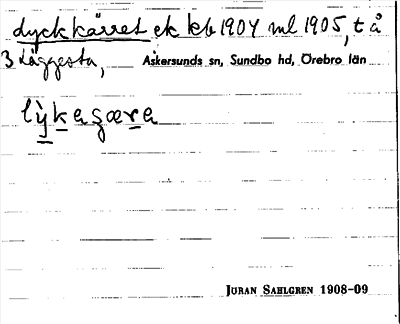 dyckkärret ek kb 1904 ml 1905, t å
3 Läggesta, Askersunds sn, Sundbo hd, Örebro län
JÖRAN SAHLGREN 1908-09